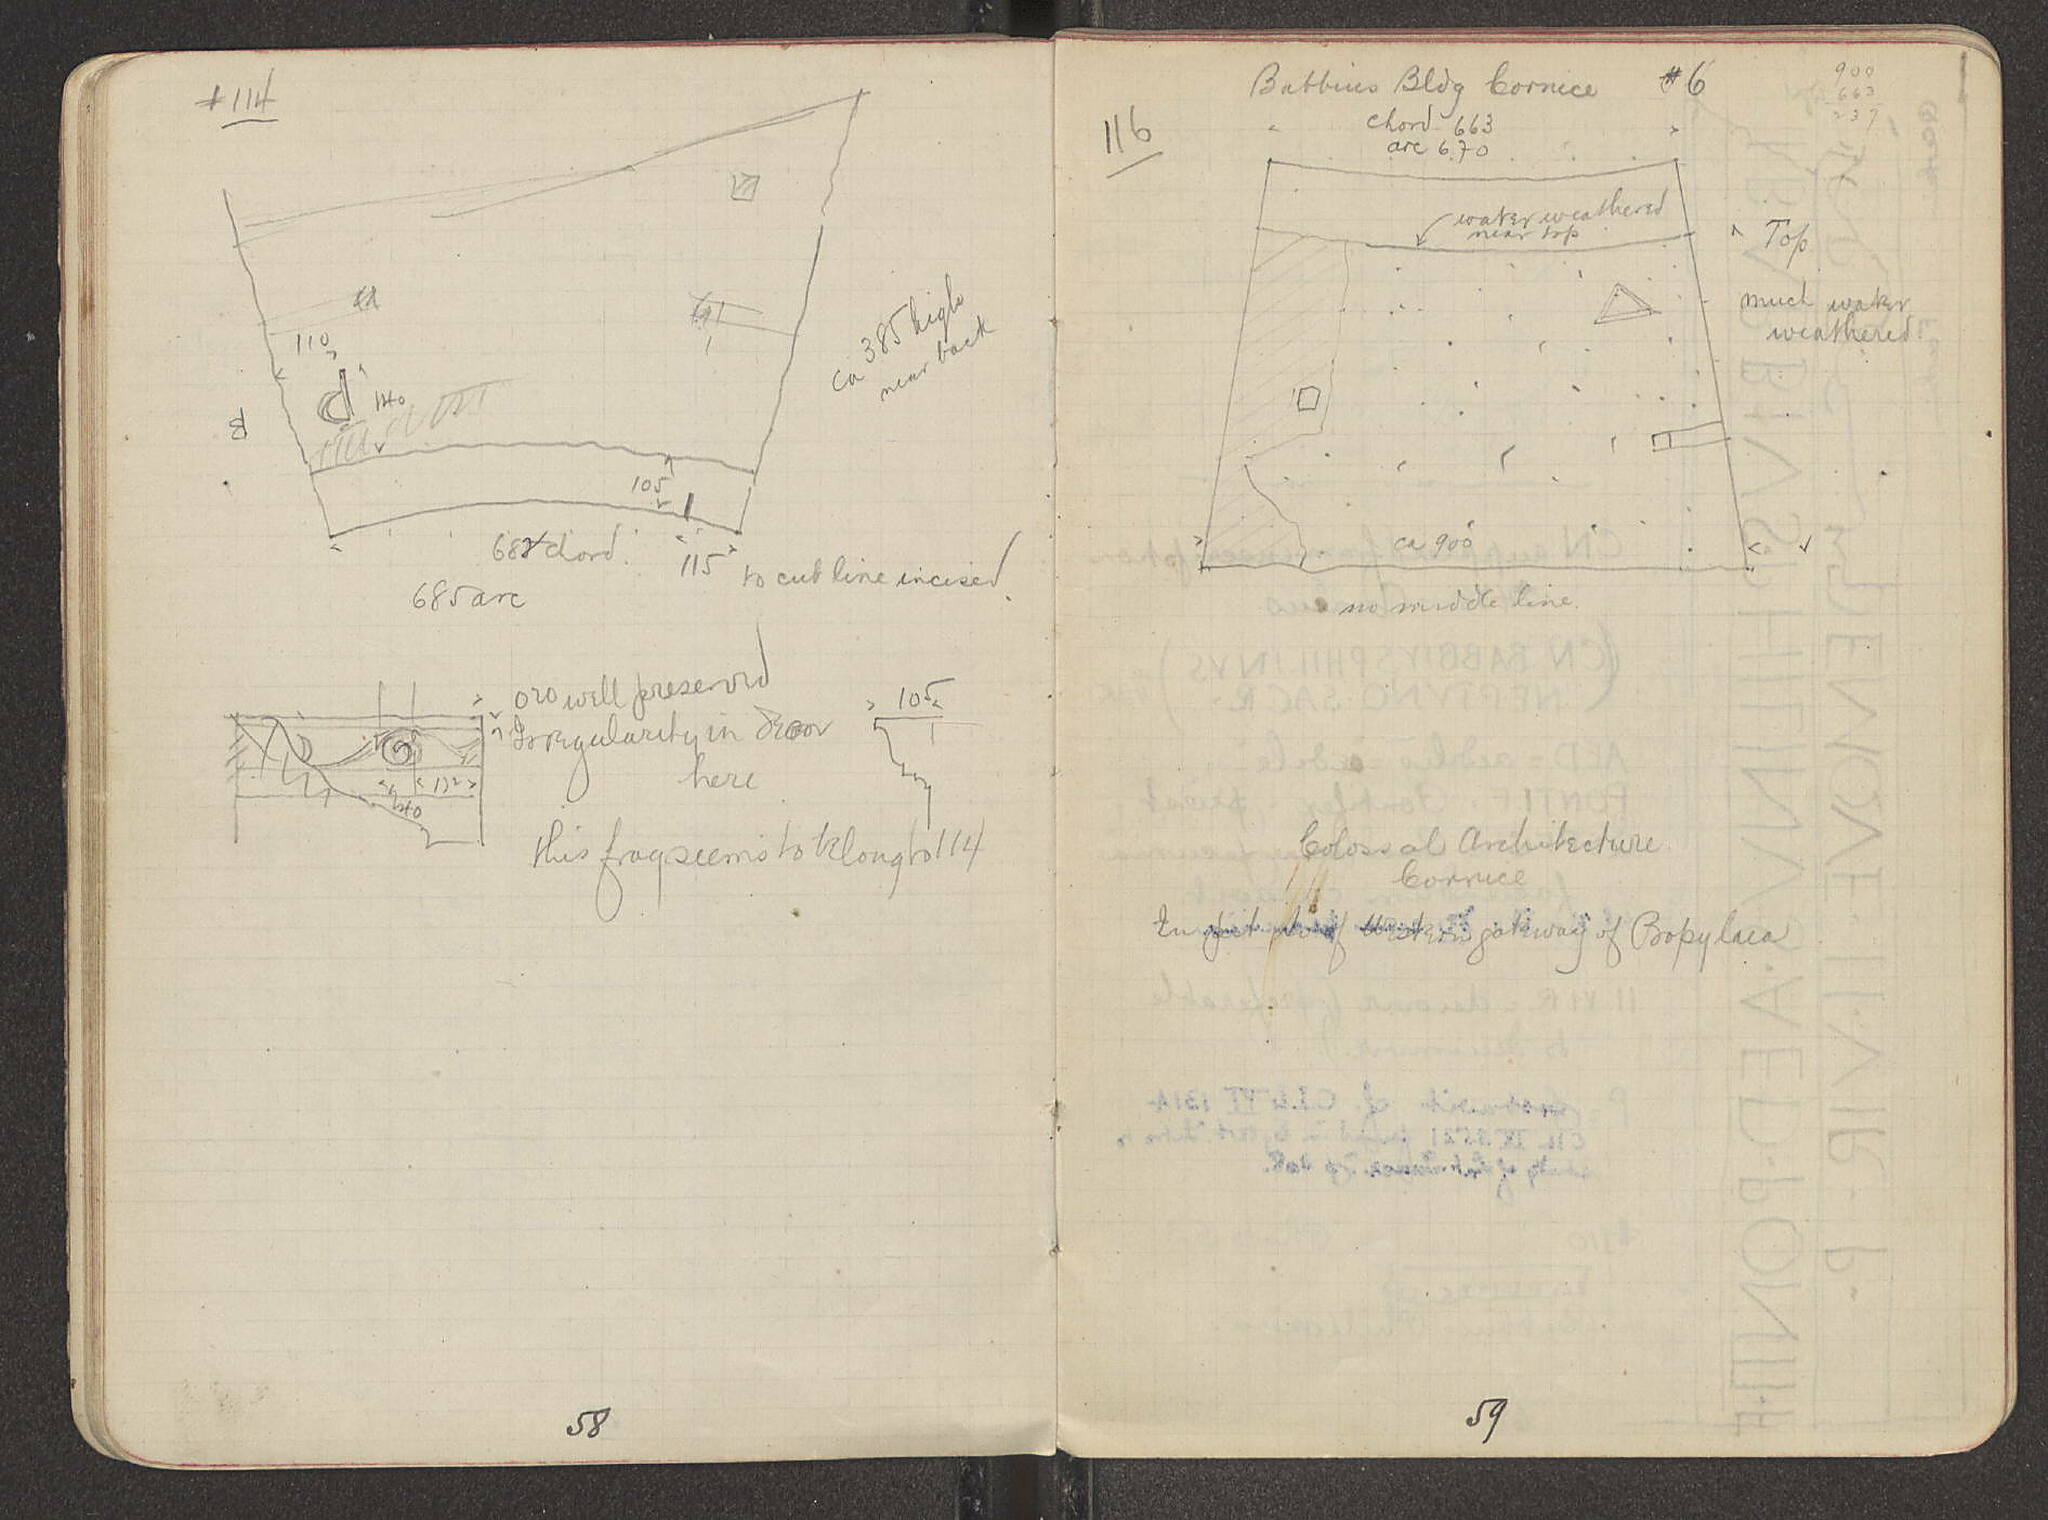 # 114
ca 385 high
near back
110
140
B
105
682 chord.
115
to cut line incised.
685 arc
020 well preserved
Irregularity in decor
here
105
132
240
this frag seems to belong to 114
58
Babbius Bldg Cornice #6
900
663
237
116
chord 663
arc 670
water weathered
near top
Top
much water
weathered
ca 900
no middle line.
Colossal Architecture
Cornice
In front of Western gateway of Propylaea
59